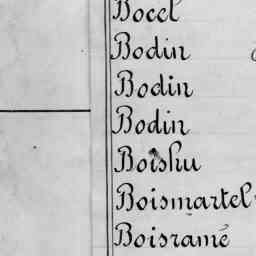 Bocel
Bodin
Bodin
Bodin
Boishu
Boismartel
Boisramé